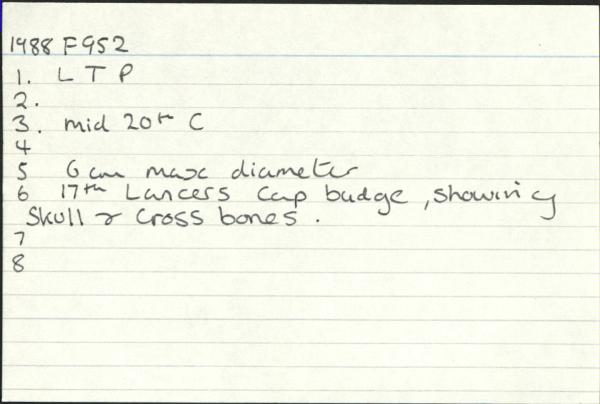 1988 F952
1. L T P
2.
3. mid 20th C
4
5 6 cm max diameter
6 17th Lancers Cap badge, showing
Skull & Cross bones.
7
8